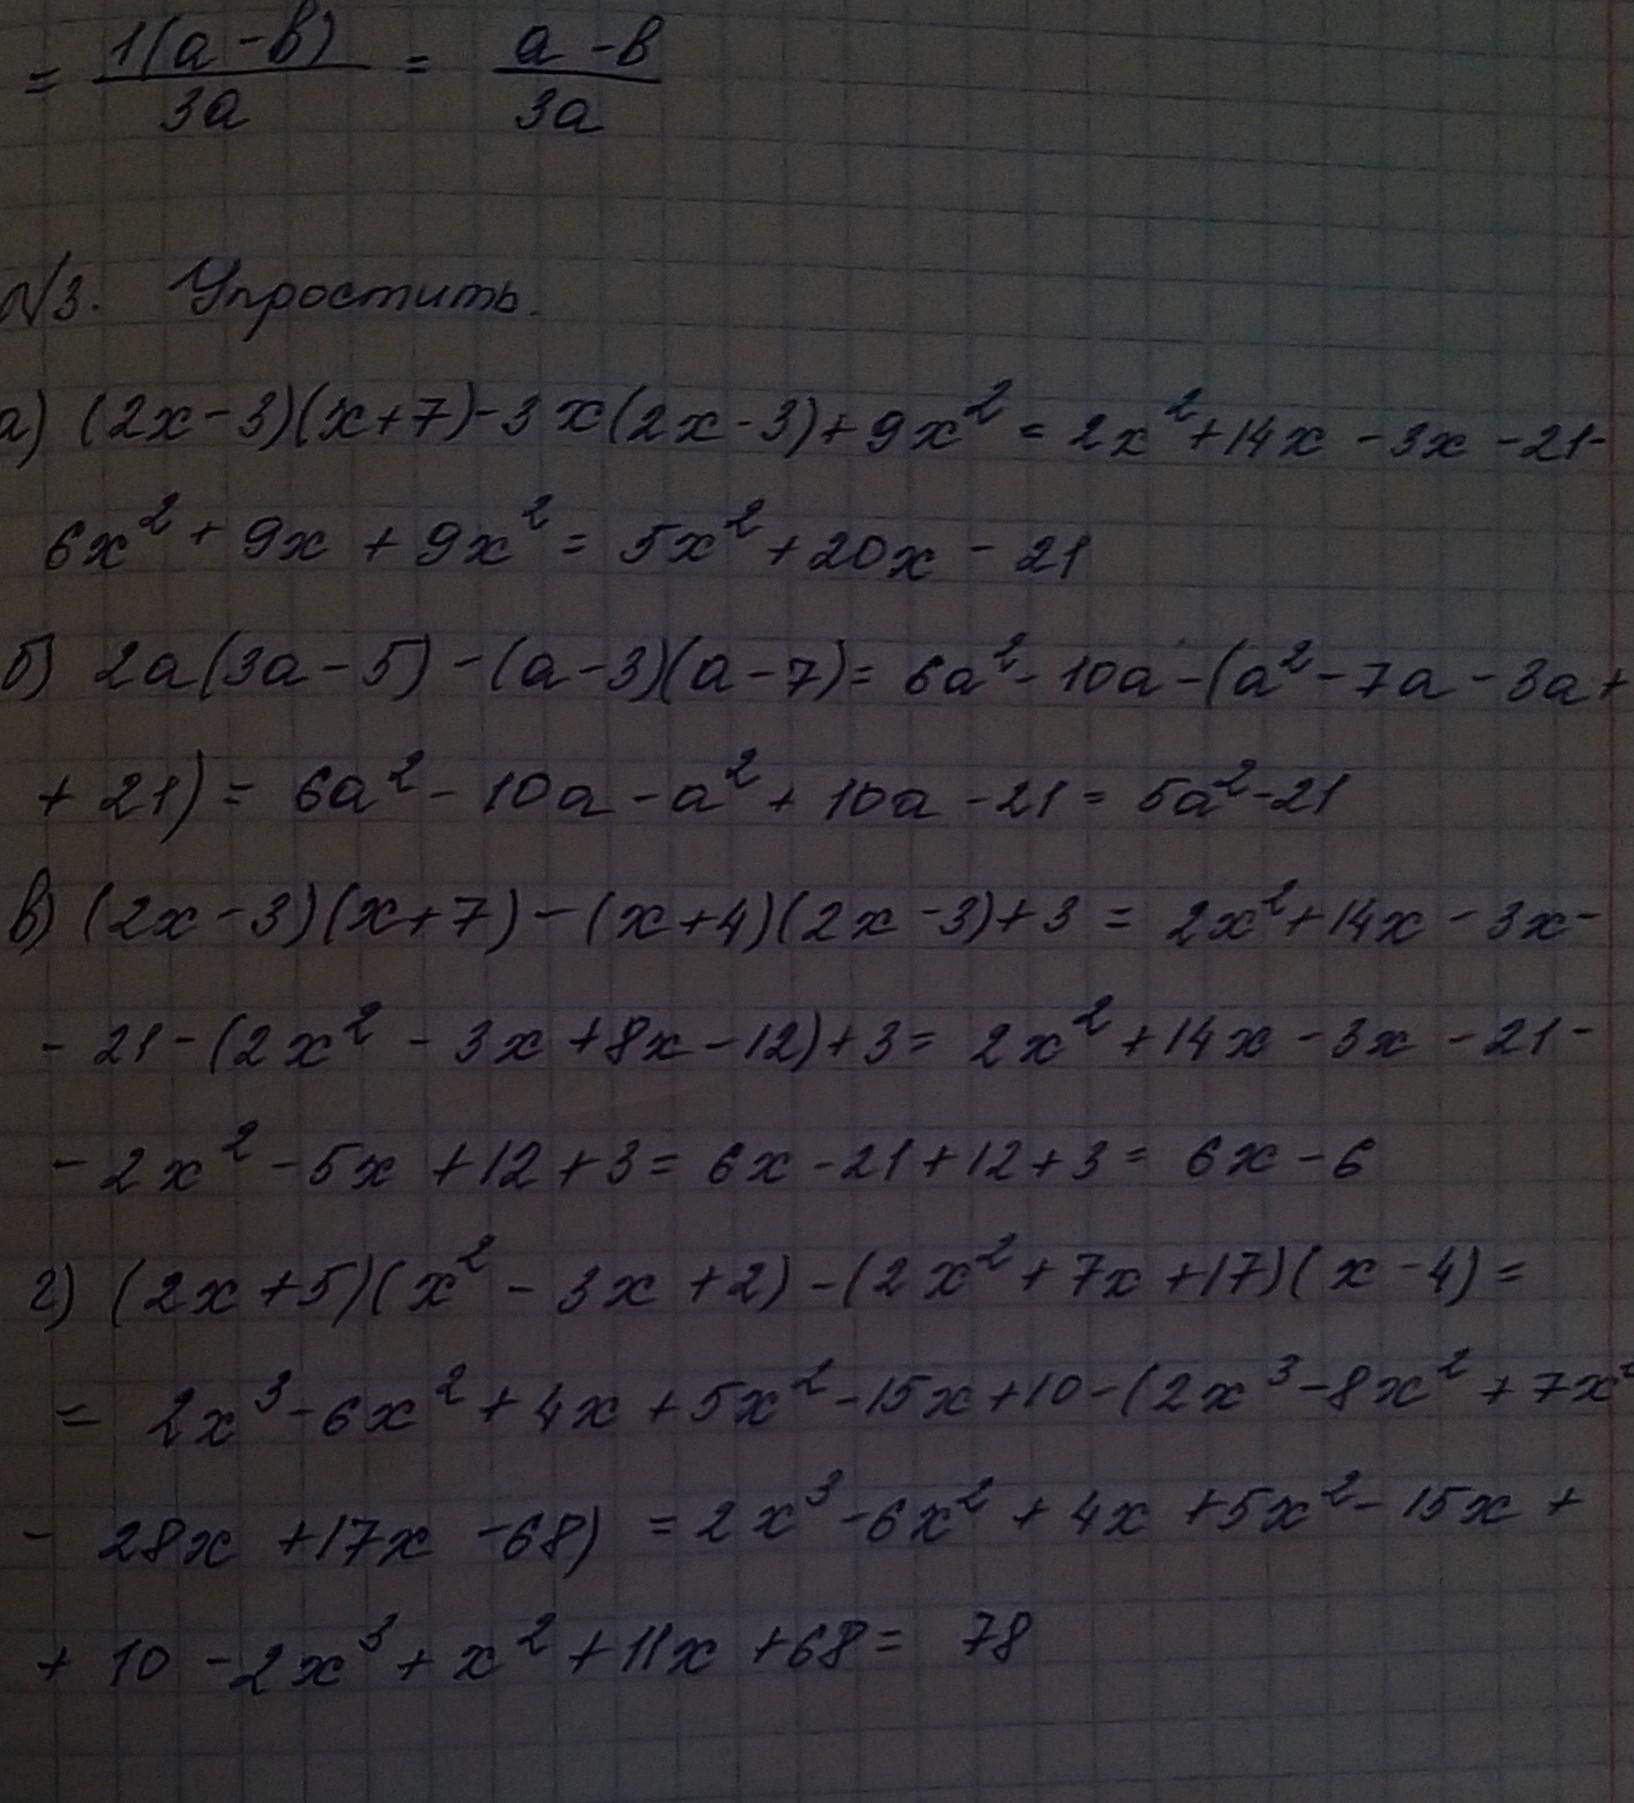 = 1(a-b)/3a = a-b/3a
№3. Упростить.
а) (2x-3)(x+7)-3x(2x-3)+9x² = 2x²+14x-3x-21-
6x²+9x+9x² = 5x²+20x-21
б) 2a(3a-5)-(a-3)(a-7)= 6a²-10a-(a²-7a-3a+
+21)= 6a²-10a-a²+10a-21= 5a²-21
в) (2x-3)(x+7)-(x+4)(2x-3)+3 = 2x²+14x-3x-
-21-(2x²-3x+8x-12)+3= 2x²+14x-3x-21-
-2x²-5x+12+3= 6x-21+12+3= 6x-6
г) (2x+5)(x²-3x+2)-(2x²+7x+17)(x-4)=
= 2x³-6x²+4x+5x²-15x+10-(2x³-8x²+7x²
-28x+17x-68) =2x³-6x²+4x+5x²-15x+
+10-2x³+x²+11x+68= 78